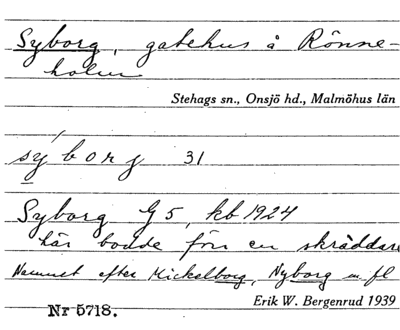 Syborg, gatehus å Rönne-
holm
Stehags sn., Onsjö hd., Malmöhus län
sý b o r j 31
Syborg G 5, kb 1924
här bodde förr en skräddare
Namnet efter Mickelborg, Nyborg m. fl
Nr 5718. Erik W. Bergenrud 1939